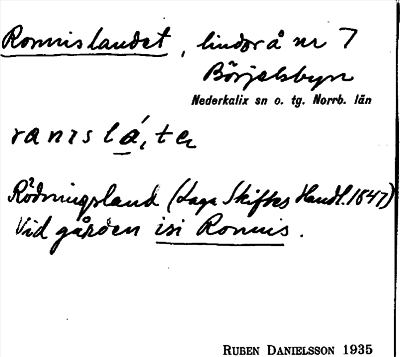 Ronnislandet, lindor å nr 7
Börjelsbyn
Nederkalix sn o. tg. Norrb. län
ranɪslá,te
Rödningsland (Laga Skiftes Handl. 1847)
Vid gården isi Ronnis.
RUBEN DANIELSSON 1935